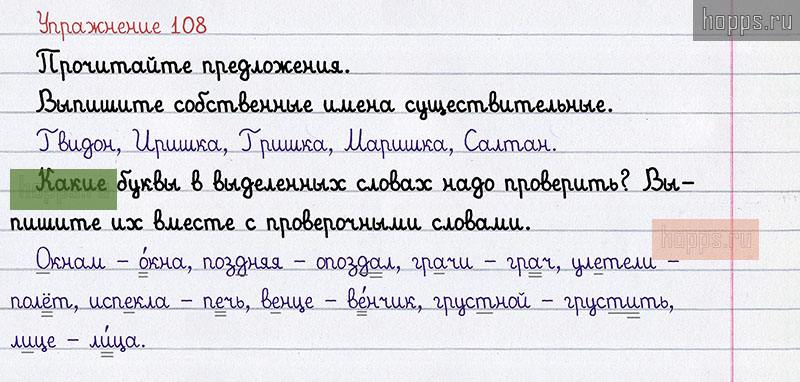 hopps.ru
Упражнение 108
Прочитайте предложения.
Выпишите собственные имена существительные.
Гвидон, Иришка, Гришка, Маришка, Салтан.
Какие буквы в выделенных словах надо проверить? Вы-
пишите их вместе с проверочными словами.
hopps.ru
Окнам – о́кна, поздняя – опоздал, грачи – грач, улетели –
полёт, испекла – печь, венце – ве́нчик, грустной – грустить,
лице – ли́ца.